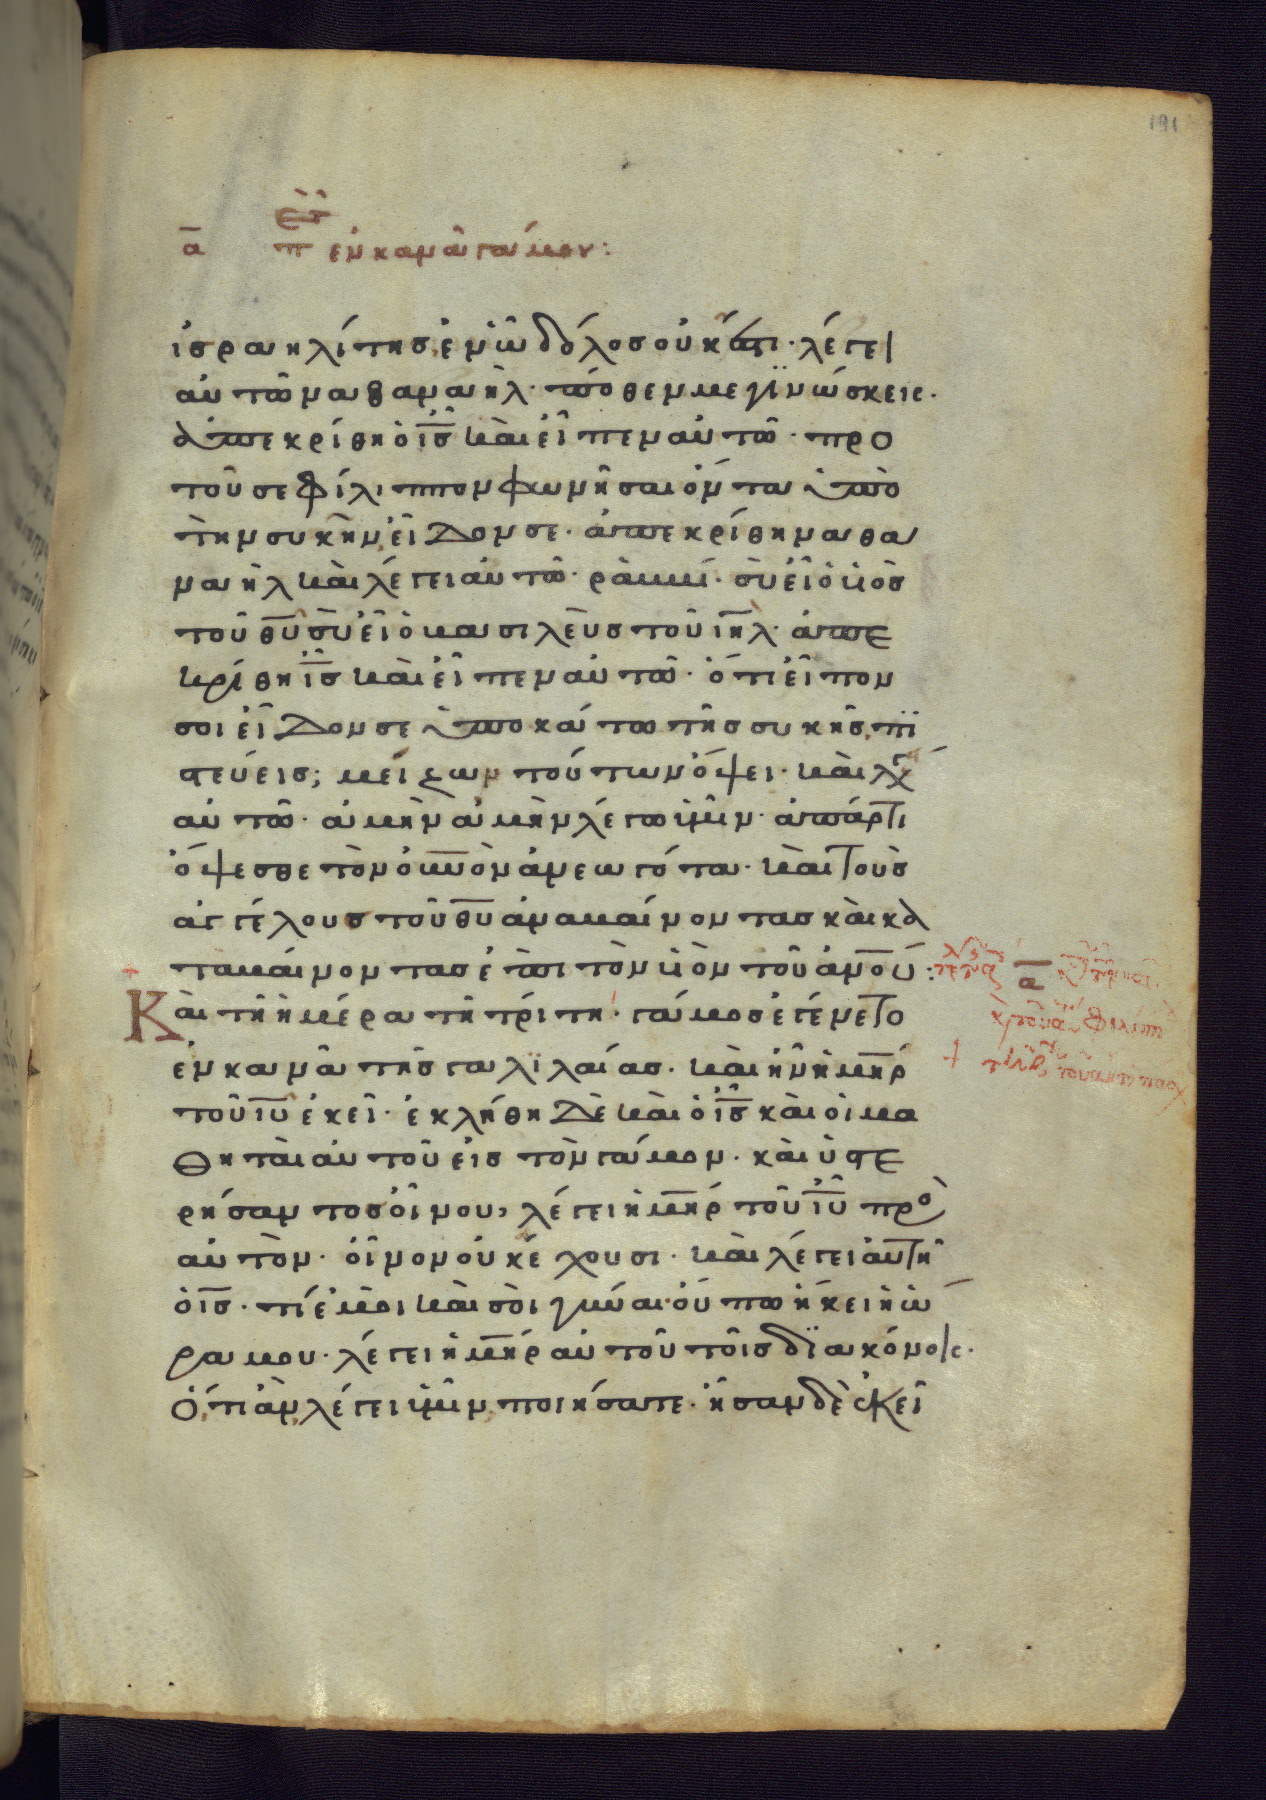 191
α̅ πε̅ρὶ τοῦ ἐν κανᾶ γάμου:
ἰσραηλίτης, ἐν ὧ δόλος οὐκ ἔστι· λέγει
αὐτῶ ναθαναήλ· πόθεν με γϊνώσκεις·
ἀπεκρίθη ὁ ι̅ς̅ καὶ εἶπεν αὐτῶ· προ
τοῦ σε φίλιππον φωνῆσαι ὄντα ὑπὸ
τὴν συκῆν, εἶδον σε· ἀπεκρίθη ναθα
ναὴλ καὶ λέγει αὐτῶ· ῥαββί· σὺ εἶ ὁ υἱὸς
τοῦ θ̅υ̅ σὺ εἶ ὁ βασιλεὺς τοῦ ι̅η̅λ̅· ἀπε
κρίθη ι̅ς̅ καὶ εἶπεν αὐτῶ· ὅτι εἶπον
σοι εἶδον σε ὑποκάτω τῆς συκῆς, πϊ
στεύεις; μείζων τούτων ὄψει· καὶ λέγ
αὐτῶ· ἀμὴν ἀμὴν λέγω ὑμῖν· ἀπάρτι
ὄψεσθε τὸν ο̅υ̅ν̅ὸν ἀνεωγότα· καὶ τοὺς
ἀγγέλους τοῦ θ̅υ̅ ἀναβαίνοντας καὶ κα
ταβαίνοντας ἐπὶ τὸν υἱὸν τοῦ α̅ν̅ο̅υ̅:
Καὶ τῆ ἡμέρα τῆ τρίτη· γάμος ἐγένετο
ἐν κανᾶ τῆς γαλϊλαίας· καὶ ἦν ἡ μ̅η̅ρ̅
τοῦ ι̅υ̅ ἐκεῖ· ἐκλήθη δὲ καὶ ὁ ι̅ς̅ καὶ οἱ μα
θηταὶ αὐτοῦ εἰς τὸν γάμον· καὶ ὑστε
ρήσαντος οἴνου, λέγει ἡ μ̅η̅ρ̅ τοῦ ι̅υ̅ πρὸς
αὐτὸν· οἶνον οὐκ ἔχουσι· καὶ λέγει αὐτῆ
ὁ ι̅ς̅· τί ἐμοὶ καὶ σοὶ γύναι· οὔπω ἥκει ἡ ὥ
ρα μου· λέγει ἡ μ̅η̅ρ̅ αὐτοῦ τοῖς δϊακόνοις·
Ὅ,τι ἂν λέγει ὑμῖν, ποιήσατε· ἦσαν δὲ ἐκεῖ